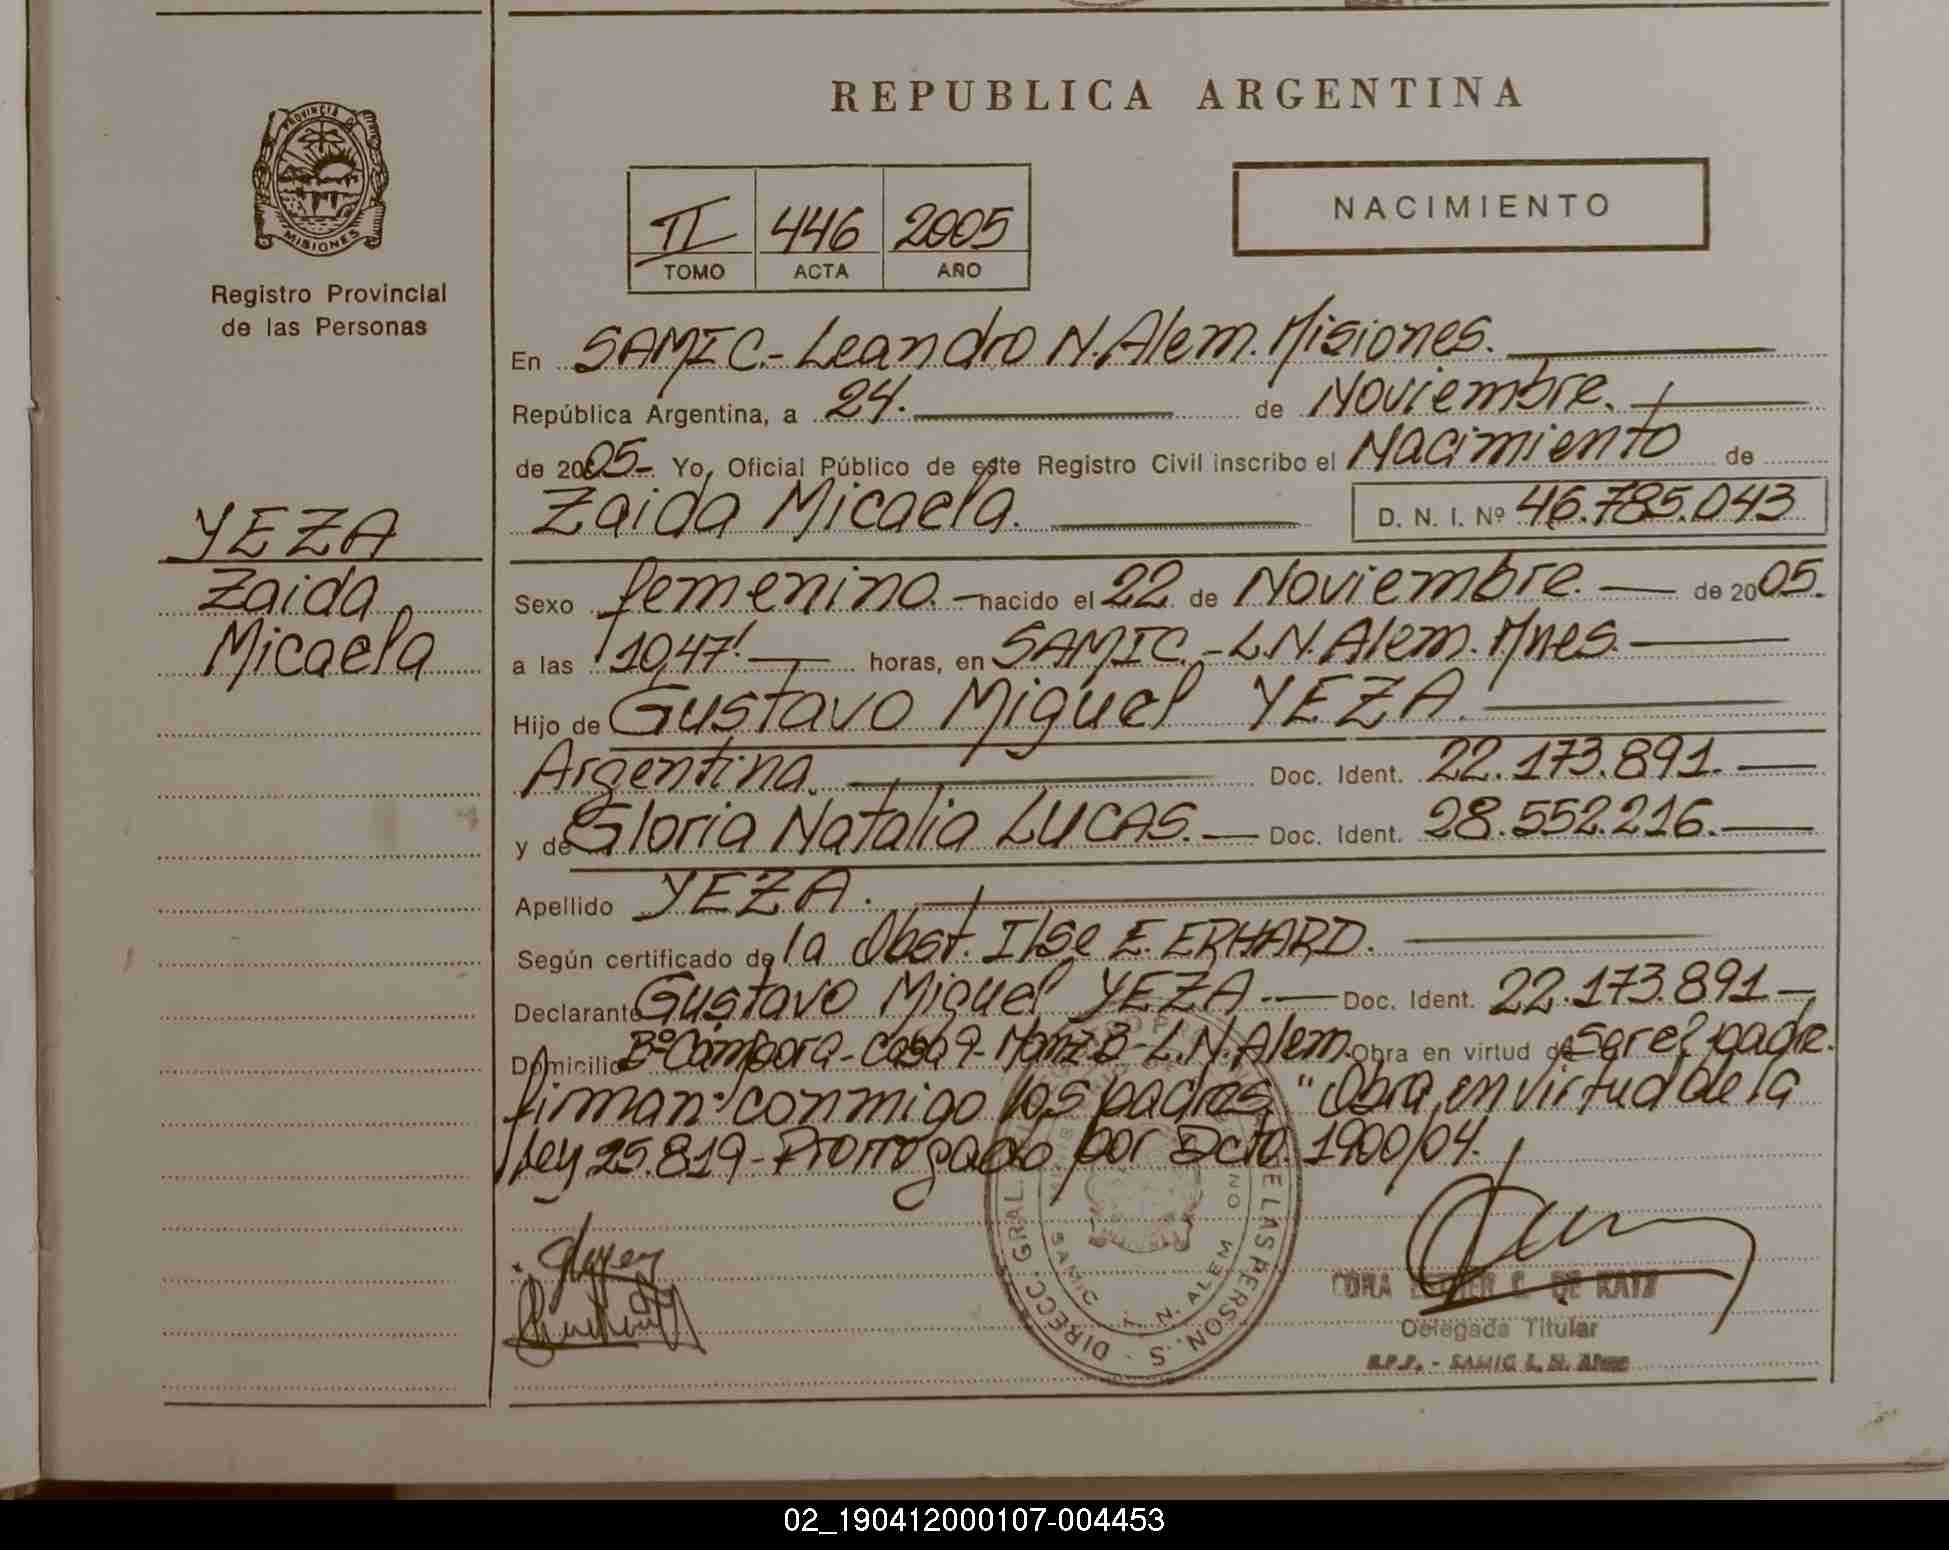 REPUBLICA ARGENTINA
PROVINCIA DE
MISIONES
Registro Provincial
de las Personas
II 446 2005
TOMO ACTA AÑO
NACIMIENTO
YEZA
Zaida
Micaela
En SAMIC.- Leandro N. Alem. Misiones.
República Argentina, a 24. de Noviembre.
de 2005- Yo, Oficial Público de este Registro Civil inscribo el Nacimiento de
Zaida Micaela. D. N. I. Nº 46.785.043
Sexo femenino.- nacido el 22 de Noviembre. de 2005.
a las 10,47! horas, en SAMIC.-L.N. Alem. Mnes.
Hijo de Gustavo Miguel YEZA.
Argentina. Doc. Ident. 22.173.891.
y de Gloria Natalia LUCAS. Doc. Ident. 28.552.216.
Apellido YEZA.
Según certificado de la Obst. Ilse E. ERHARD.
Declarante Gustavo Miguel YEZA.- Doc. Ident. 22.173.891-
Domicilio Bº Cámpora-casa 9-Manz B-L.N. Alem. Obra en virtud de ser el padre.
firman: conmigo los padres "Obra en virtud de la
Ley 25.819-Prorrogado por Dcto. 1900/04.
DIRECC. GRAL. DE LAS PERSON.S.
SAMIC L. N. ALEM
DE KATZ
Delegada Titular
R.P.P. - SAMIC L. N. Alem
02_190412000107-004453